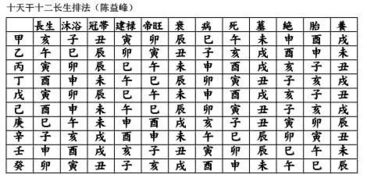 十天干十二长生排法（陈益峰）
長生 沐浴 冠帶 建祿 帝旺 衰 病 死 墓 絕 胎 養
甲 亥 子 丑 寅 卯 辰 巳 午 未 申 酉 戌
乙 午 巳 辰 卯 寅 丑 子 亥 戌 酉 申 未
丙 寅 卯 辰 巳 午 未 申 酉 戌 亥 子 丑
丁 酉 申 未 午 巳 辰 卯 寅 丑 子 亥 戌
戊 寅 卯 辰 巳 午 未 申 酉 戌 亥 子 丑
己 酉 申 未 午 巳 辰 卯 寅 丑 子 亥 戌
庚 巳 午 未 申 酉 戌 亥 子 丑 寅 卯 辰
辛 子 亥 戌 酉 申 未 午 巳 辰 卯 寅 丑
壬 申 酉 戌 亥 子 丑 寅 卯 辰 巳 午 未
癸 卯 寅 丑 子 亥 戌 酉 申 未 午 巳 辰